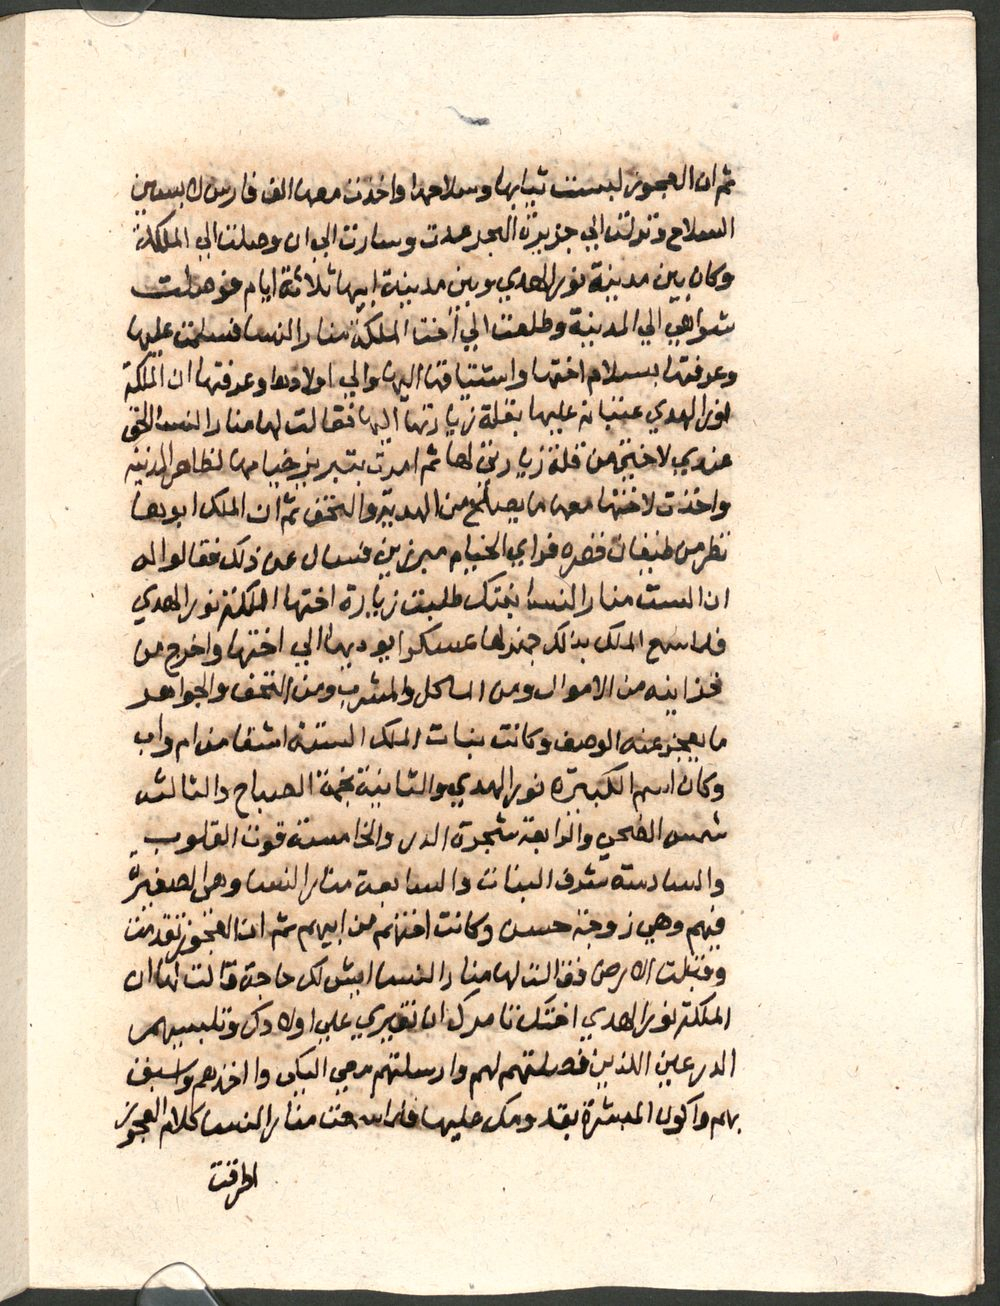 ثم ان العجوز لبست ثيابها وسلاحها واخذت معها الف فارس لابسين
السلاح ونزلت الي جزيرة البحر عدت وسارت الي ان وصلت الي الملكة
وكان بين مدينة نور الهدي وبين مدينة ابيها ثلاثة ايام فوصلت
شواهي الي المدينة وطلعت الي أخت الملكة منار النسا فسلمت عليها
وعرفتها بسلام اختها واشتياقها اليها والي اولادها وعرفتها ان الملكة
نور الهدي عتبانه عليها بقلة زيارتها اليها فقالت لها منار النسا الحق
عندي لاختي من قلة زيارتي لها ثم امرت بتبريز خيامها لظاهر المدينه
واخذت لاختها معها ما يصلح من الهدية والتحف ثم ان الملك ابوها
نظر من طيقان قصره فراي الخيام مبرزين فسال عن ذلك فقالوا له
ان الست منار النسا بنتك طلبت زيارة اختها الملكة نور الهدي
فلما سمع الملك بذلك جهز لها عسكرا يوديها الي اختها واخرج من
خزاينه من الاموال ومن الماكل والمشرب ومن التحف والجواهر
ما يعجز عنه الوصف وكانت بنات الملك الستة اشقا من ام واب
وكان اسم الكبيرة نور الهدي والثانية نجمة الصباح والثالثه
شمس الضحي والرابعة شجرة الدر والخامسة قوت القلوب
والسادسة شرف البنات والسابعة منار النسا وهي الصغيرة
فيهم وهي زوجة حسن وكانت اختهم من ابيهم ثم ان العجوز تقدمت
وقبلت الارض فقالت لها منار النسا ايش لك حاجة قالت لها ان
الملكة نور الهدي اختك تامرك ان تغيري علي اولادك وتلبسيهم
الدرعين اللذين فصلتهم لهم وارسلتهم معي اليكي واخذهم واسبق
بهم واكون المبشرة بقدومك عليها فلما سمعت منار النسا كلام العجوز
اطرقت